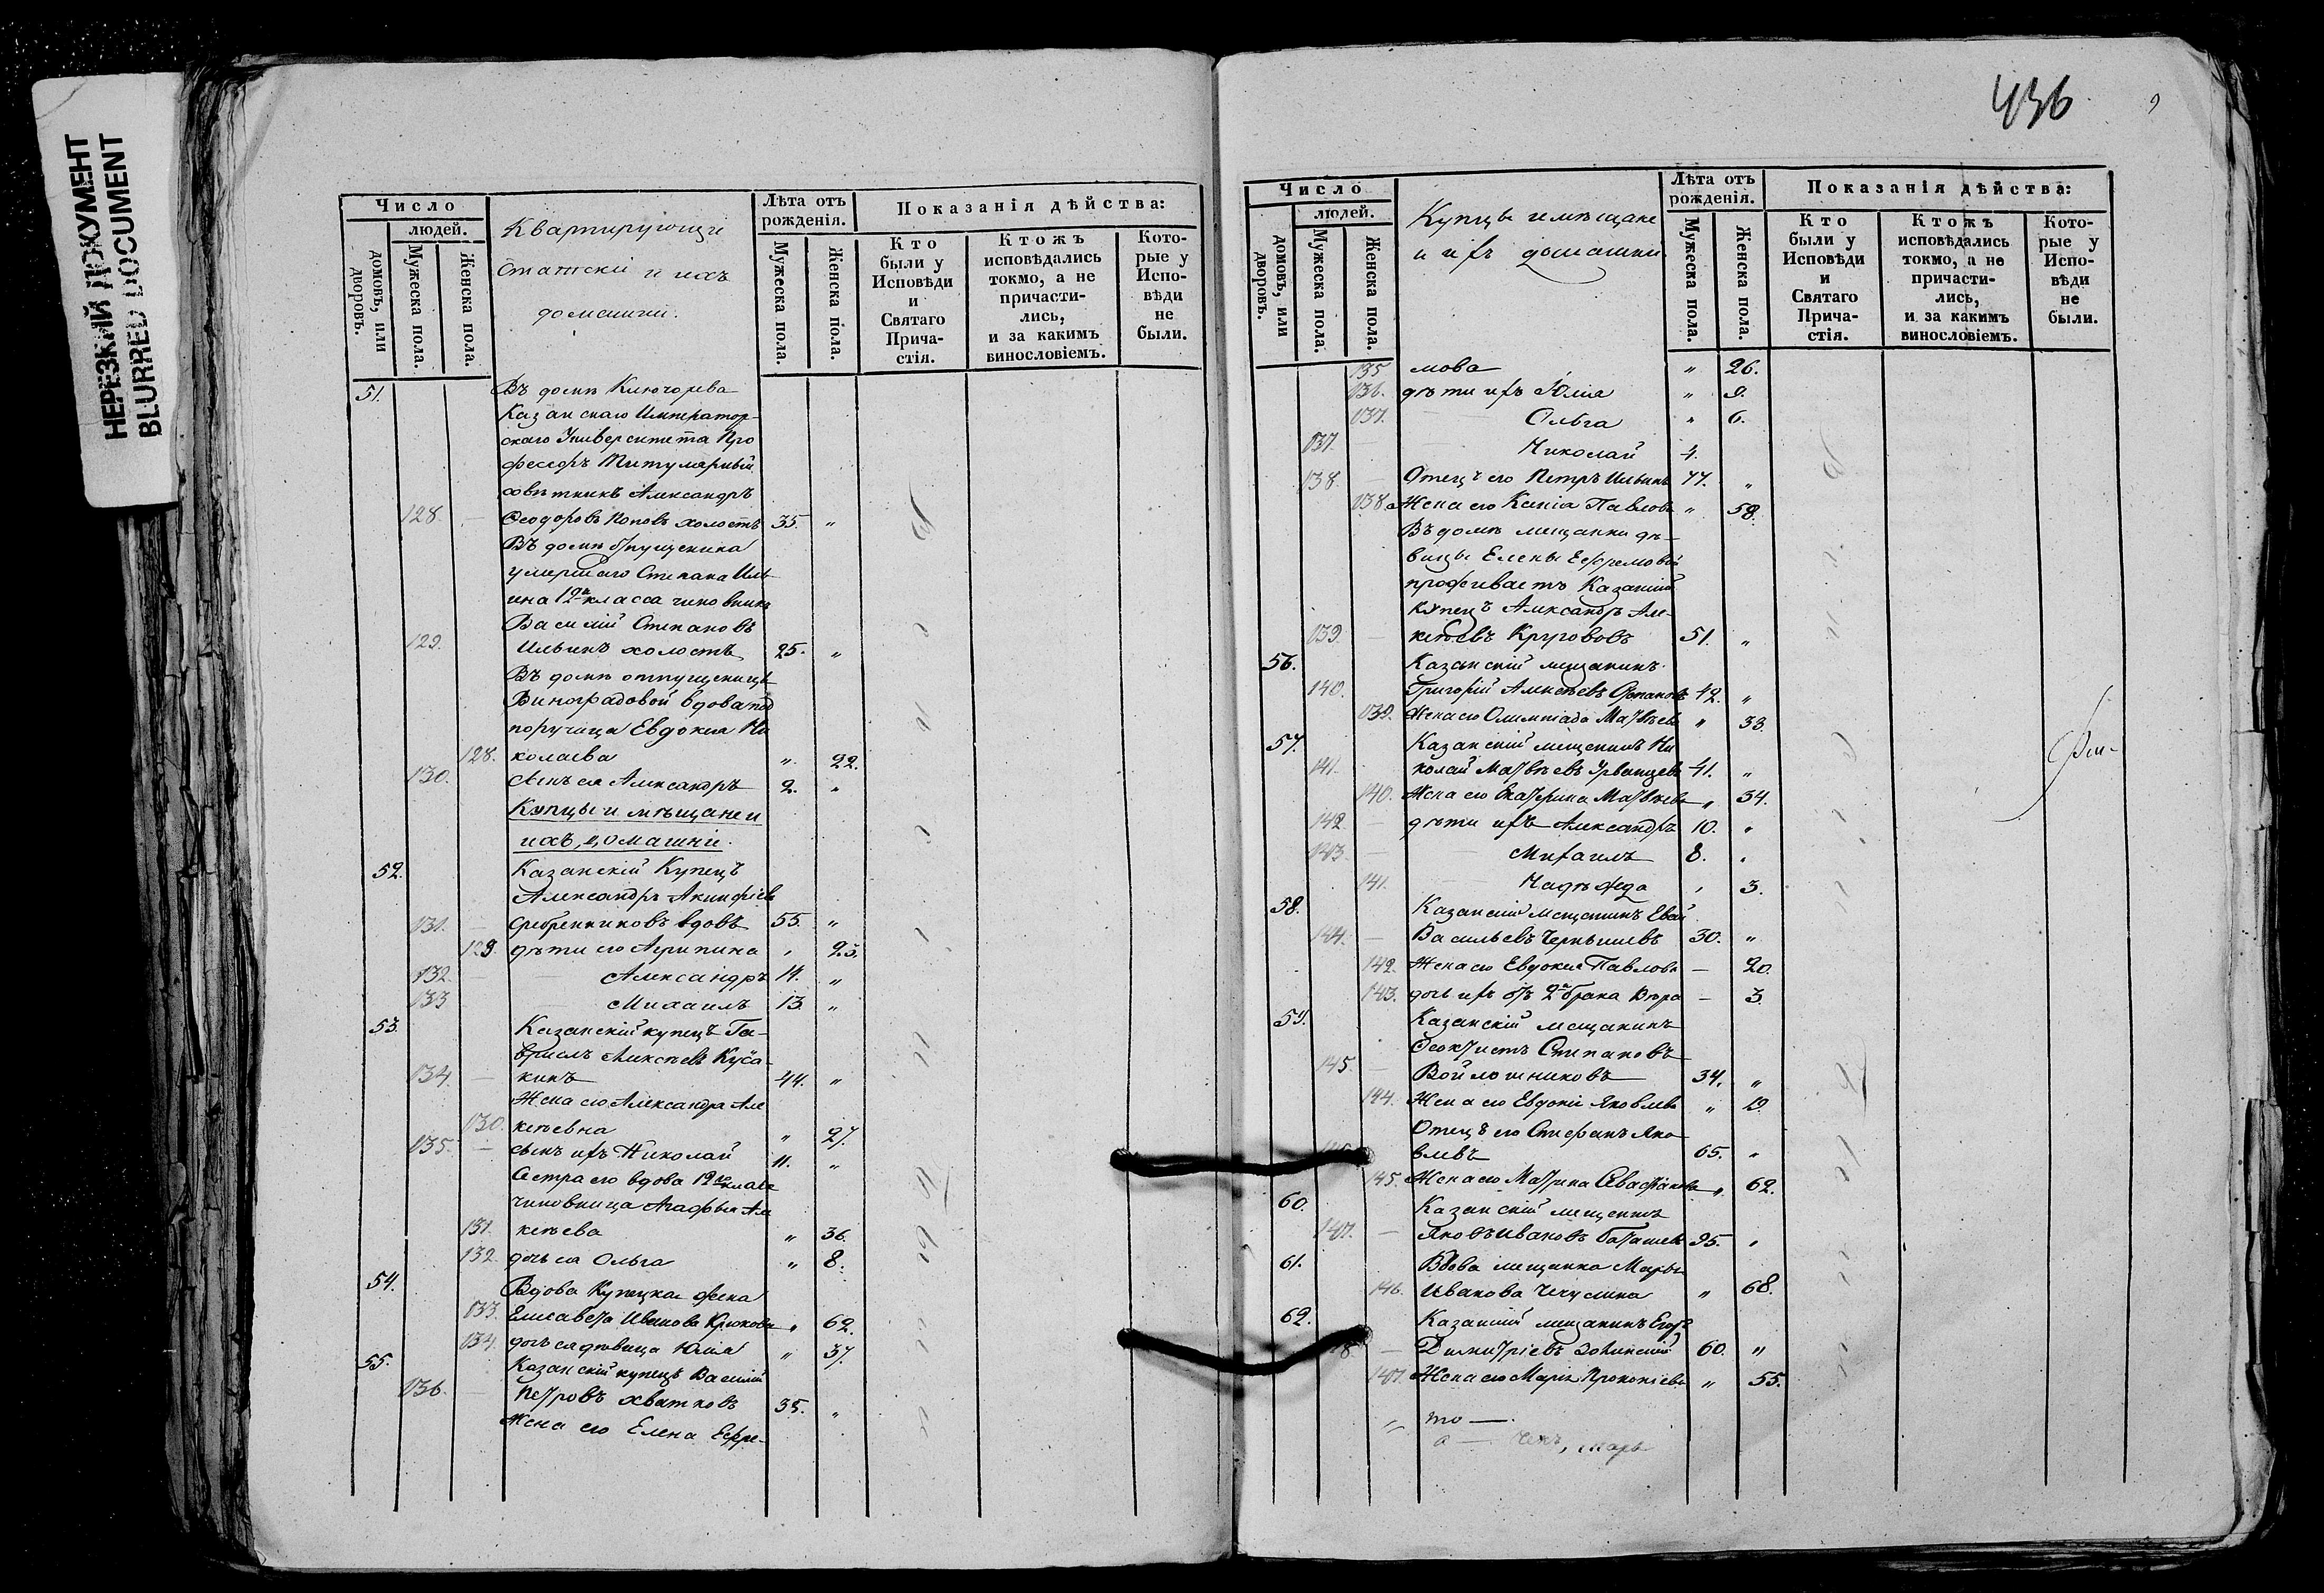 НЕРЕЗКИЙ ДОКУМЕНТ
BLURRED DOCUMENT
Число
людей.
домовъ, или дворовъ.
Мужеска пола.
Женска пола.
Квартирующіе
Статскіи и ихъ
домашніи.
Лѣта отъ рожденія.
Мужеска пола.
Женска пола.
Показанія дѣйства:
Кто были у Исповѣди и Святаго Причастія.
Ктожъ исповѣдались токмо, а не причастились, и за какимъ винословіемъ.
Которые у Исповѣди не были.
51. Въ домѣ Ключарева
Казанскаго Император-
скаго Университета Про
фесоръ Титулярный
совѣтникъ Александръ
128. — Ѳеодоровъ Поповъ холостъ 35. „
Въ домѣ отпущеника
умершаго Степана Иль-
ина 12го класса чиновникъ
Василій Степановъ
129. Ильинъ холостъ 25. „
Въ домѣ отпущеницы
Виноградовой вдова под
поручица Евдокия Ни
128. колаева „ 22.
130. сынъ ея Александръ 2. „
Купцы и мѣщане и
ихъ домашніи.
52. Казанскій Купецъ
Александръ Акинфіевъ
131. — Сребренниковъ вдовъ 55. „
129 дѣти его Агрипина „ 23.
132. — Александръ 14. „
133 — Михаилъ 13. „
53. Казанскій купецъ Га-
врилъ Алексѣевъ Куса-
134. — кинъ 44. „
Жена его Александра Але
130. ксѣевна „ 27.
135. — сынъ ихъ Николай 11. „
Сестра его вдова 12го класа
чиновница Агафья Але
131. ксѣева „ 36.
132 дочь ея Ольга „ 8.
54. Вдова Купецкая жена
133. Елисавета Иванова Крюкова „ 62.
134. дочь ея дѣвица Юлія „ 37.
55. Казанскій купецъ Василій
136. — Петровъ Хватковъ 35. „
Жена его Елена Ефре-
436
Число
людей.
домовъ, или дворовъ.
Мужеска пола.
Женска пола.
Купцы и мѣщане
и ихъ домашни.
Лѣта отъ рожденія.
Мужеска пола.
Женска пола.
Показанія дѣйства:
Кто были у Исповѣди и Святаго Причастія.
Ктожъ исповѣдались токмо, а не причастились, и за какимъ винословіемъ.
Которые у Исповѣди не были.
135 мова „ 26.
136. дѣти ихъ Юлія „ 9.
137. Ольга „ 6.
137. Николай 4.
138. Отецъ его Петръ Ильинъ 77. „
138 Жена его Ксенія Павлова „ 58.
Въ домѣ мещанки дѣ-
вицы Елены Ефремовой
проживаетъ Казанскій
купецъ Александръ Але-
139. — ксѣевъ Кругововъ 51. „
56. Казанскій мещанинъ
140. Григорій Алексѣевъ 42. „
139. Жена его Олимпіада Матвѣева „ 33.
57. Казанскій мещанинъ Ни
141. колай Матвѣевъ Урванцевъ 41. „
140. Жена его Екатерина Матвѣева „ 34.
142 — дѣти ихъ Александръ 10. „
143. — Михаилъ 8. „
141. — Надѣжда „ 3.
58. Казанскій Мещанинъ
144. — Васильевъ Чернышевъ 30. „
142. Жена его Евдокія Павлова — 20.
143. дочь ихъ отъ 2го брака Вѣра — 3.
59. Казанскій мещанинъ
Ѳеоктистъ Степановъ
145 — Войлошниковъ 34. „
144. Жена его Евдокія Яковлева „ 19.
Отецъ его Стефанъ Яко
влевъ 65. „
145. Жена его Матрина „ 62.
60. Казанскій мещанинъ
147. — Яковъ Ивановъ Баташевъ 25. „
61. Вдова мещанка Марья
146. Иванова Чекулина „ 68.
62. Казанскій мещанинъ Егоръ
— Димитріевъ 60. „
147. Жена его Марія Прокопіева „ 55.